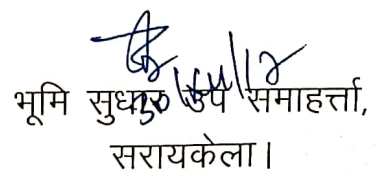 30/11/12
भूमि सुधार उप समाहर्त्ता,
सरायकेला।